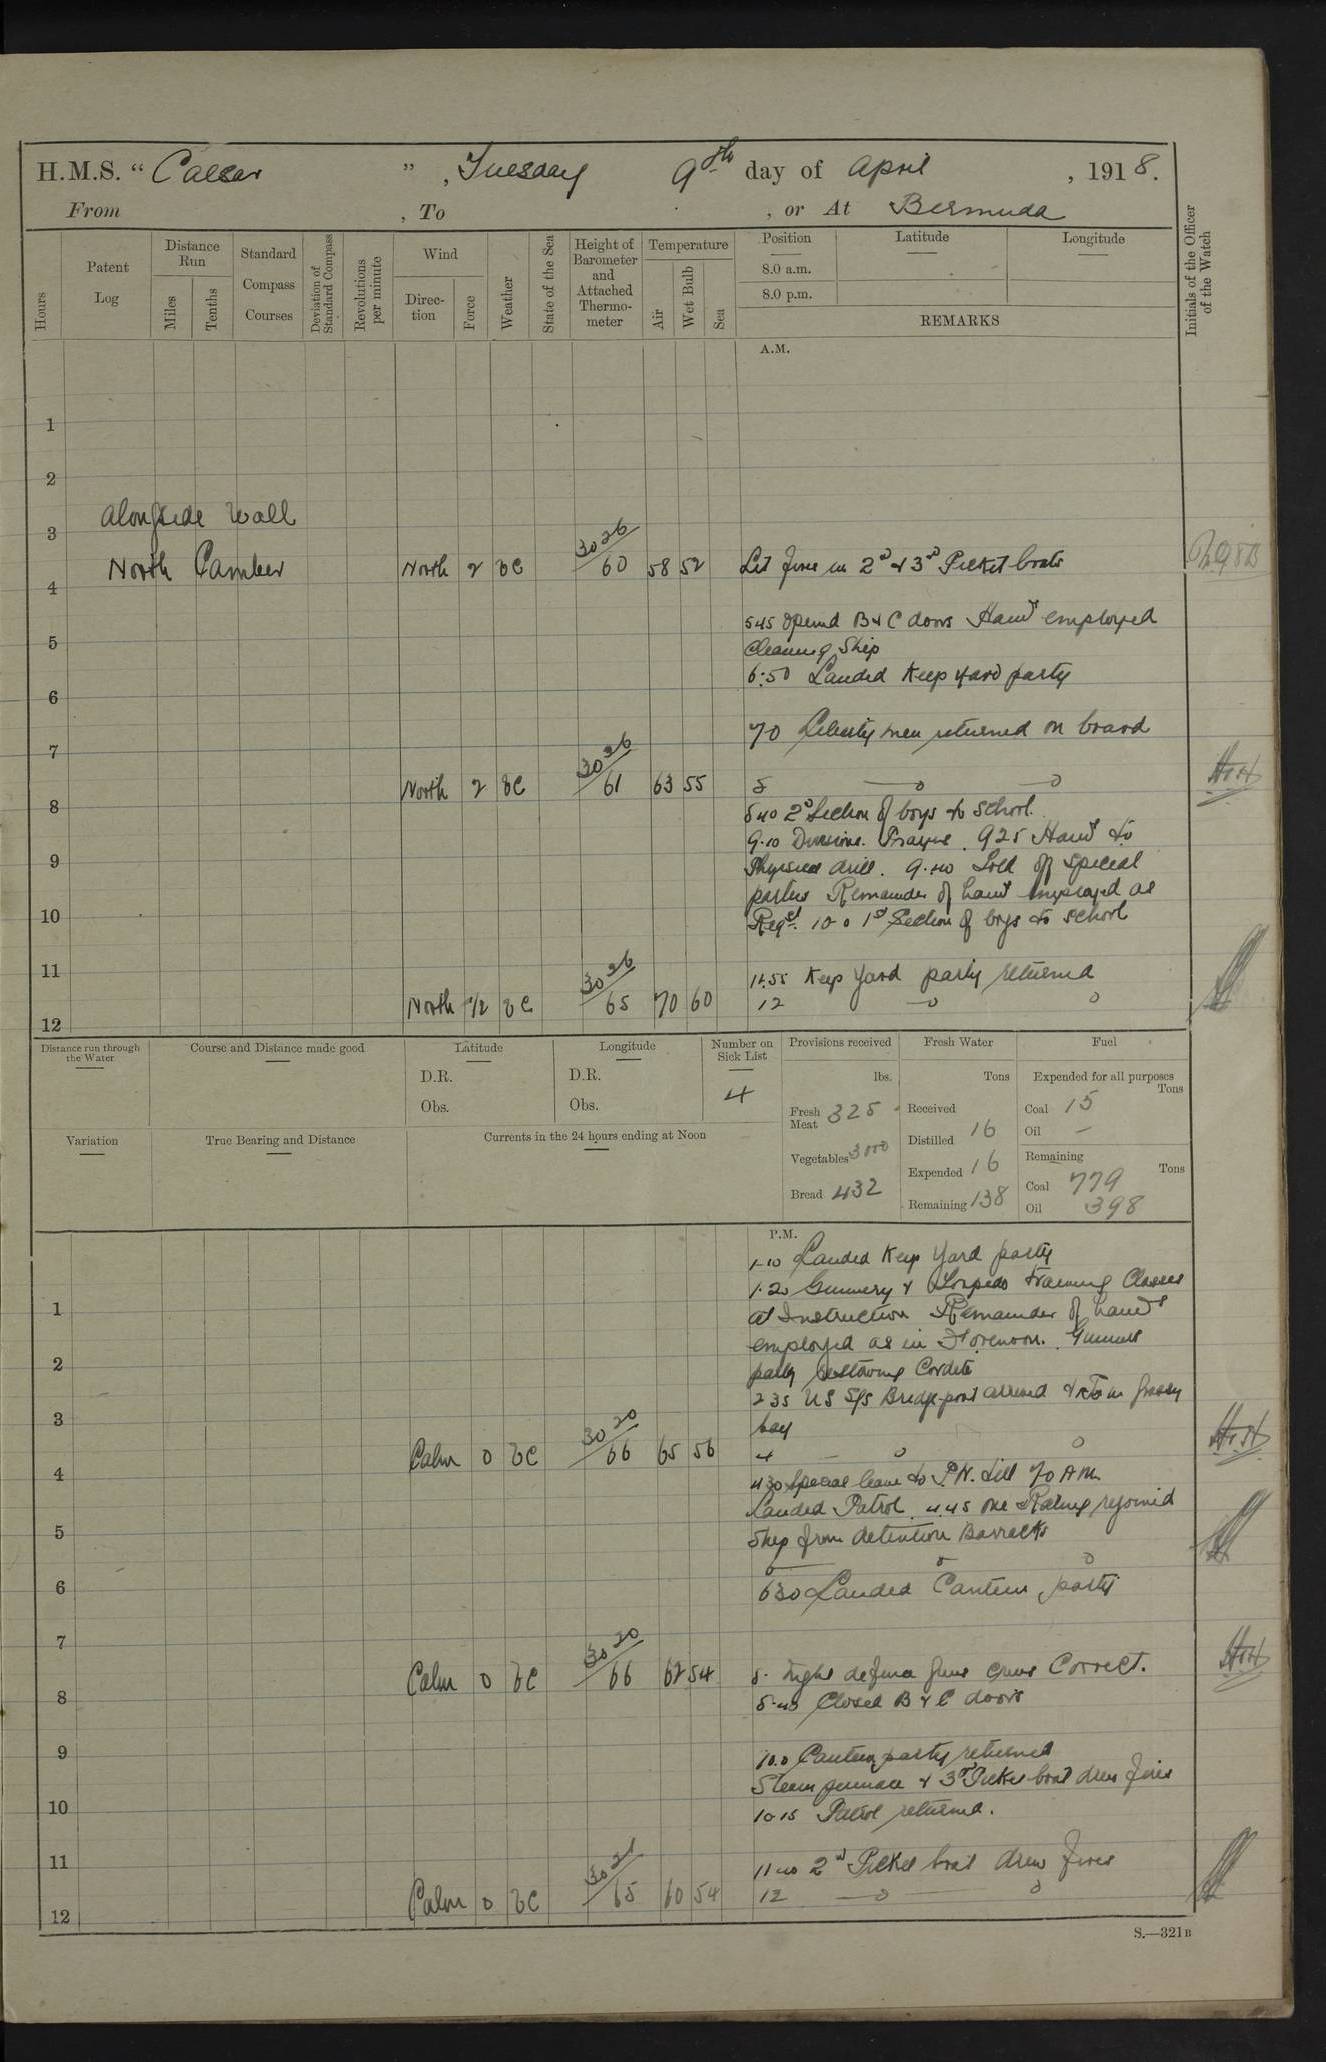 H.M.S. "Caesar", Tuesday 9th day of April, 1918.
From , To , or At Bermuda
Hours
Patent Log
Distance Run
Miles
Tenths
Standard Compass Courses
Deviation of Standard Compass
Revolutions per minute
Wind
Direction
Force
Weather
State of the Sea
Height of Barometer and Attached Thermometer
Temperature
Air
Wet Bulb
Sea
Position
8.0 a.m.
8.0 p.m.
Latitude
Longitude
REMARKS
Initials of the Officer of the Watch
A.M.
1
2
Alongside Wall
3
North Camber North 2 bc 30 26/60 58 52 Lit fires in 2d & 3rd Picket boats
4
545 Opened B & C doors Hands employed
5
Cleaning Ship
6.50 Landed Keep Yard party
6
70 Liberty men returned on board
7
North 2 bc 30 26/61 63 55 8
8
840 2d Section of boys to School.
9.10 Divisions. Prayers. 925 Hands to
9
Physical drill. 9.40 Told off special
parties Remainder of hands employed as
10
Reqd. 10.0 1st Section of boys to School
11
11.55 Keep Yard party returned
North 1/2 bc 30 26/65 70 60 12
12
Distance run through the Water
Course and Distance made good
Latitude
D.R.
Obs.
Longitude
D.R.
Obs.
Number on Sick List
4
Provisions received
lbs.
Fresh Meat 325
Vegetables 300
Bread 432
Fresh Water
Tons
Received
Distilled 16
Expended 16
Remaining 138
Fuel
Expended for all purposes
Tons
Coal 15
Oil —
Remaining
Tons
Coal 779
Oil 398
Variation
True Bearing and Distance
Currents in the 24 hours ending at Noon
P.M.
1-10 Landed Keep Yard party
1.20 Gunnery & Torpedo training Classes
1
at Instruction Remainder of hands
employed as in Forenoon. Gunners
2
party restowing Cordite
2 35 US S/S Bridgeport arrived & in Grassy
3
bay
Calm 0 bc 30 20/66 65 56 4
4
430 Special leave to P.N. till 70 AM.
Landed Patrol. 4.45 One Rating rejoined
5
Ship from detention Barracks
6
6
630 Landed Canteen party
7
Calm 0 bc 30 20/66 62 54 8. Night defence guns crews Correct.
8
8.45 Closed B & C doors
9
10.0 Canteen party returned
Steam pinnace & 3rd Picket boat drew fires
10
10 15 Patrol returned.
11
11 40 2d Picket boat drew fires
Calm 0 bc 30 21/65 60 54 12
12
S.—321B